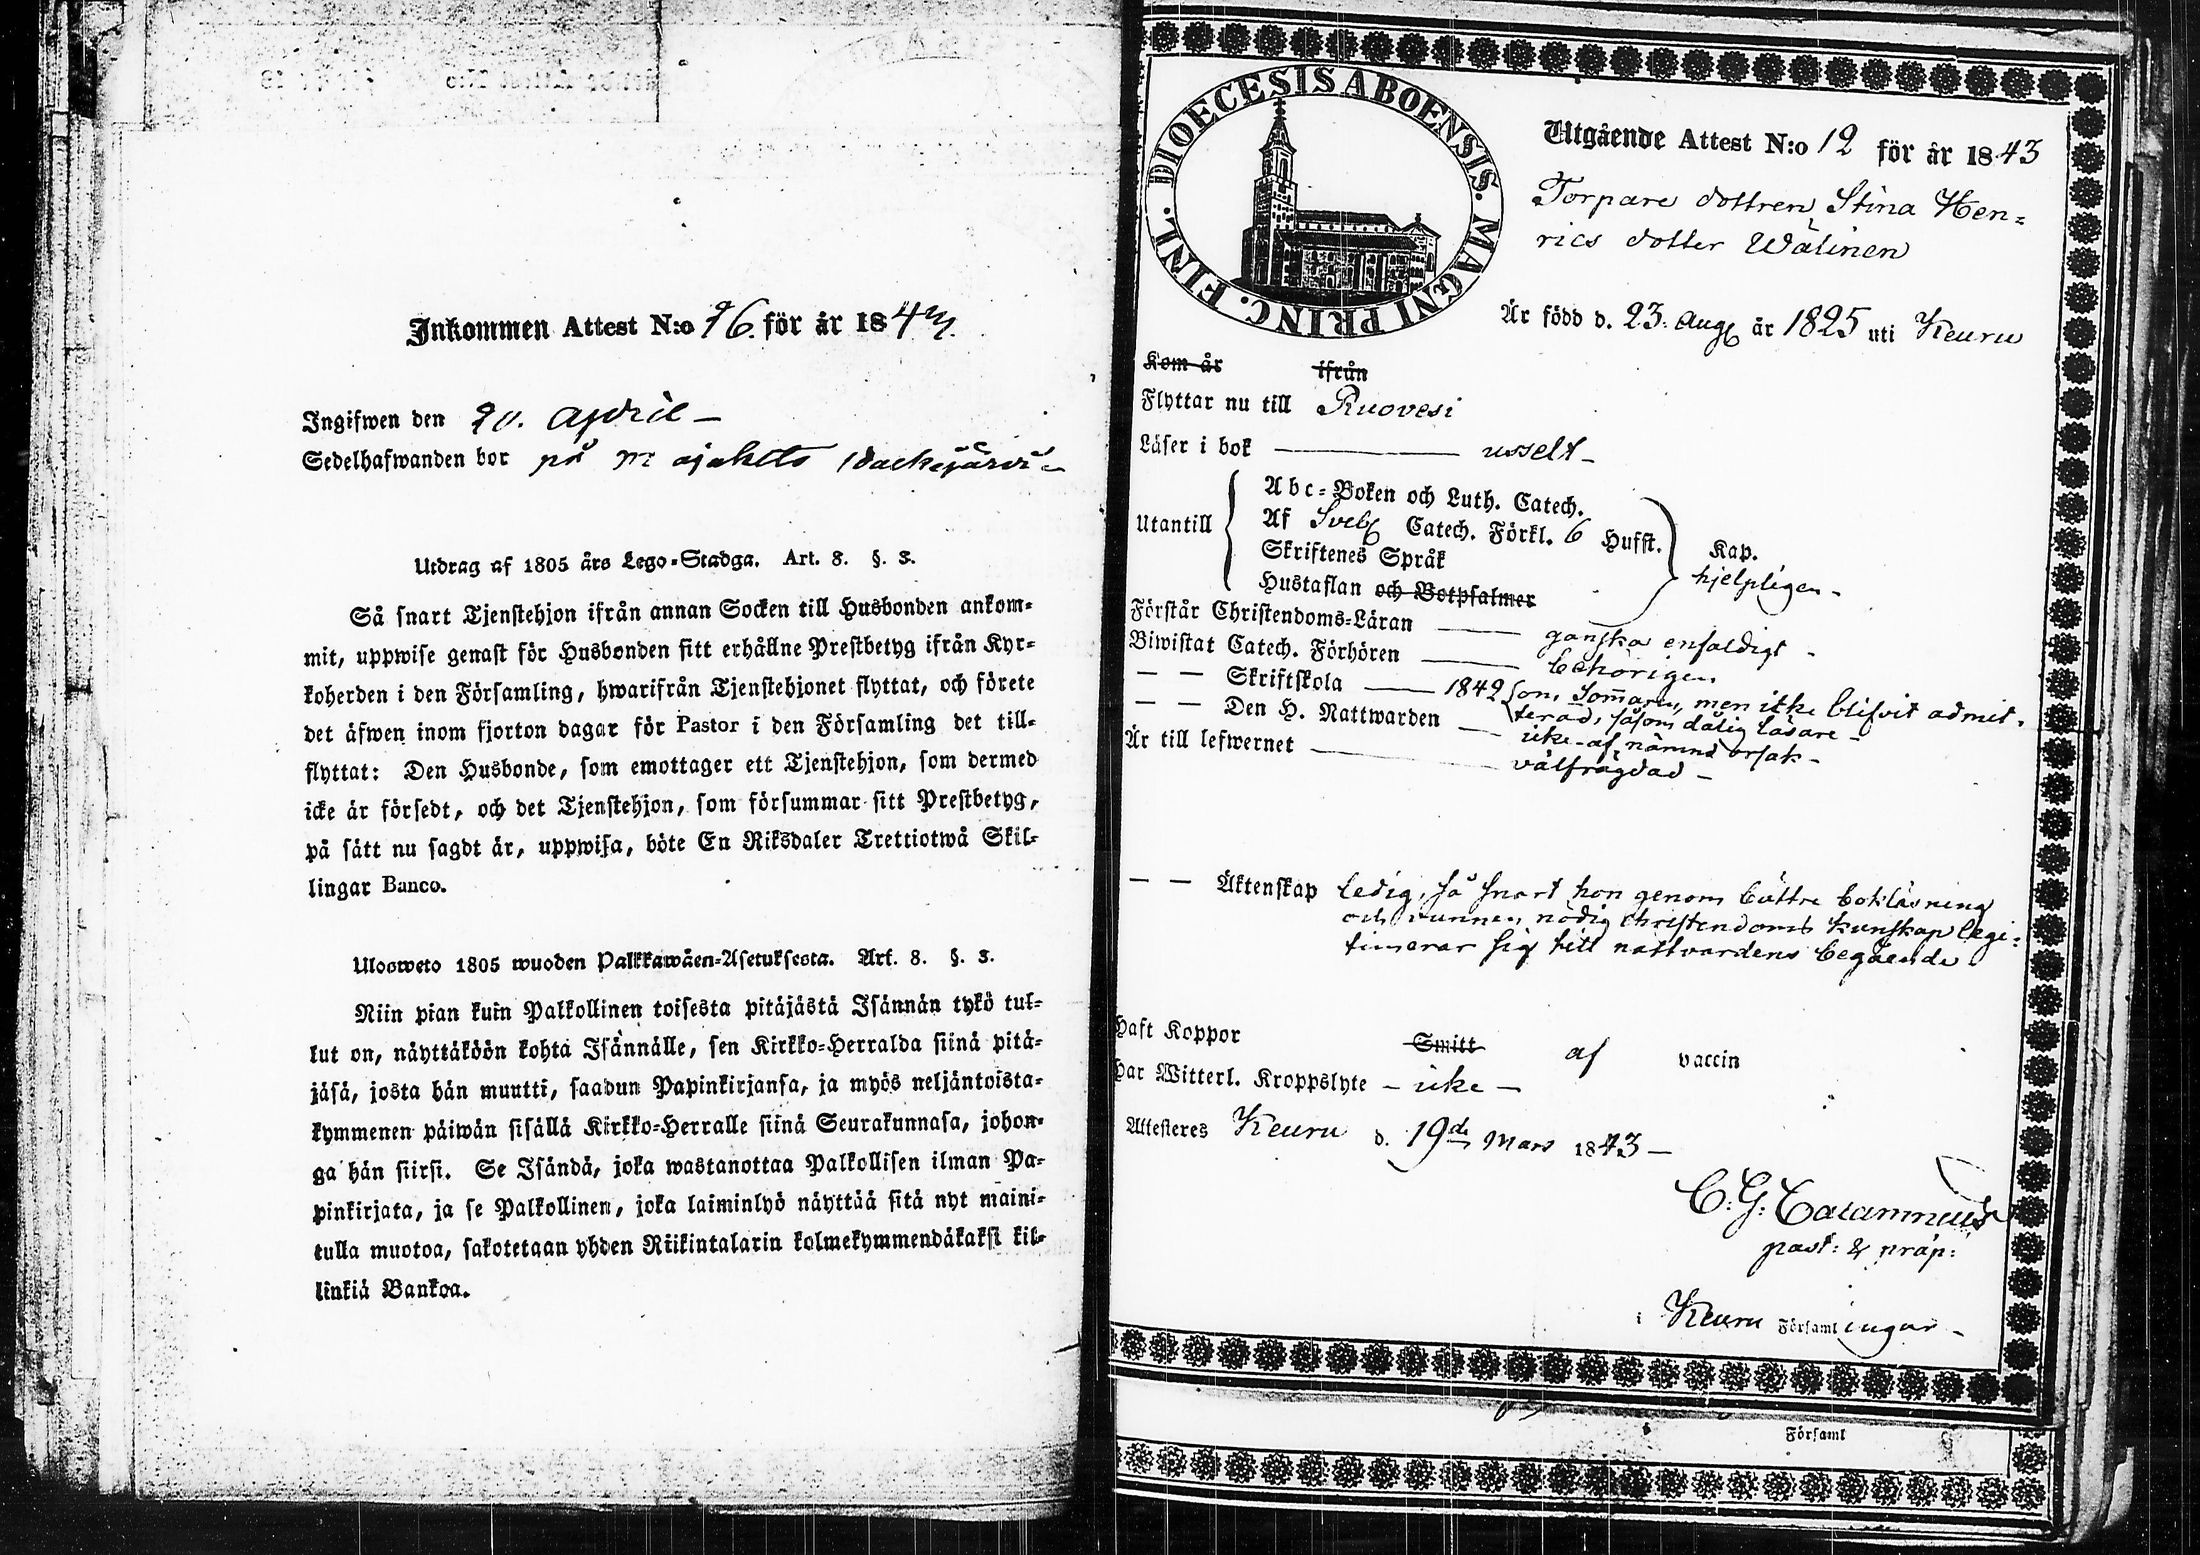 Inkommen Attest N:o 96. för år 184
Ingifwen den 20. April –
Sedelhafwanden bor på
Utdrag af 1805 års Lego-Stadga. Art. 8. §. 3.
Så snart Tjenstehjon ifrån annan Socken till Husbonden ankom-
mit, uppwise genast för Husbonden sitt erhållne Prestbetyg ifrån Kyr-
koherden i den Församling, hwarifrån Tjenstehjonet flyttat, och förete
det äfwen inom fjorton dagar för Pastor i den Församling det till-
flyttat: Den Husbonde, som emottager ett Tjenstehjon, som dermed
icke är försedt, och det Tjenstehjon, som försummar sitt Prestbetyg,
på sätt nu sagdt är, uppwisa, böte En Riksdaler Trettiotwå Skil-
lingar Banco.
Ulosweto 1805 wuoden Palkkawäen-Asetuksesta. Art. 8. §. 3.
Niin pian kuin Palkollinen toisesta pitäjästä Isännän tykö tul-
lut on, näyttäköön kohta Isännälle, sen Kirkko-Herralda siinä pitä-
jäsä, josta hän muutti, saadun Papinkirjansa, ja myös neljäntoista-
kymmenen päiwän sisällä Kirkko-Herralle siinä Seurakunnasa, johon-
ga hän siirsi. Se Isändä, joka wastanottaa Palkollisen ilman Pa-
pinkirjata, ja se Palkollinen, joka laiminlyö näyttää sitä nyt maini-
tulla muotoa, sakotetaan yhden Riikintalarin kolmekymmendäkaksi kil-
linkiä Bankoa.
DIOECESIS ABOENSIS. MAGNI PRINC. FINL.
Utgående Attest N:o 12 för år 1843
Torpare dottren Stina Hen=
rics dotter Wälinen
Är född d. 23. Aug år 1825 uti Keuru
Kom år ifrån
Flyttar nu till Ruovesi
Läser i bok usselt –
Utantill
Abc-Boken och Luth. Catech.
Af Sveb Catech. Förkl. 6 Hufst. Kap.
Skriftenes Språk hjelpligen –
Hustaflan och Botpsalmer
Förstår Christendoms-Läran ganska enfaldigt –
Biwistat Catech. Förhören behörigen
— — Skriftskola 1842 om Sommaren, men icke blifvit admit-
terad, såsom dålig läsare –
— — Den H. Nattwarden icke af nämnd orsak –
Är till lefwernet välfrägdad –
— — Äktenskap ledig, så snart hon genom bättre bokläsning
och vunnen nödig christendoms kunskap legi=
timerar sig till nattvardens begående.
Haft Koppor Smitt af vaccin
Har Witterl. Kroppslyte – icke –
Attesteres Keuru d. 19de Mars 1843 –
C. G. Calamnius
past: & präp:
i Keuru Församlingar –
Församl